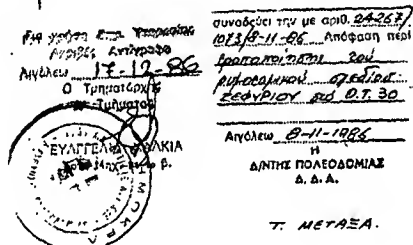 Για χρήση Υπηρεσίας
Ακριβές Αντίγραφο
Αιγάλεω 17-12-86
Ο Τμηματάρχης
Τμήματος
ΕΥΑΓΓΕΛΙΑ
β.
συνοδεύει την με αριθ. 24267/
1073/8-11-86 Απόφαση περί
τροποποίησης του
ρυμοτομικού σχεδίου
ΖΕΦΥΡΙΟΥ στο Ο.Τ. 30
Αιγάλεω 8-11-1986
Η
Δ/ΝΤΗΣ ΠΟΛΕΟΔΟΜΙΑΣ
Δ. Δ. Α.
Τ. ΜΕΤΑΞΑ.